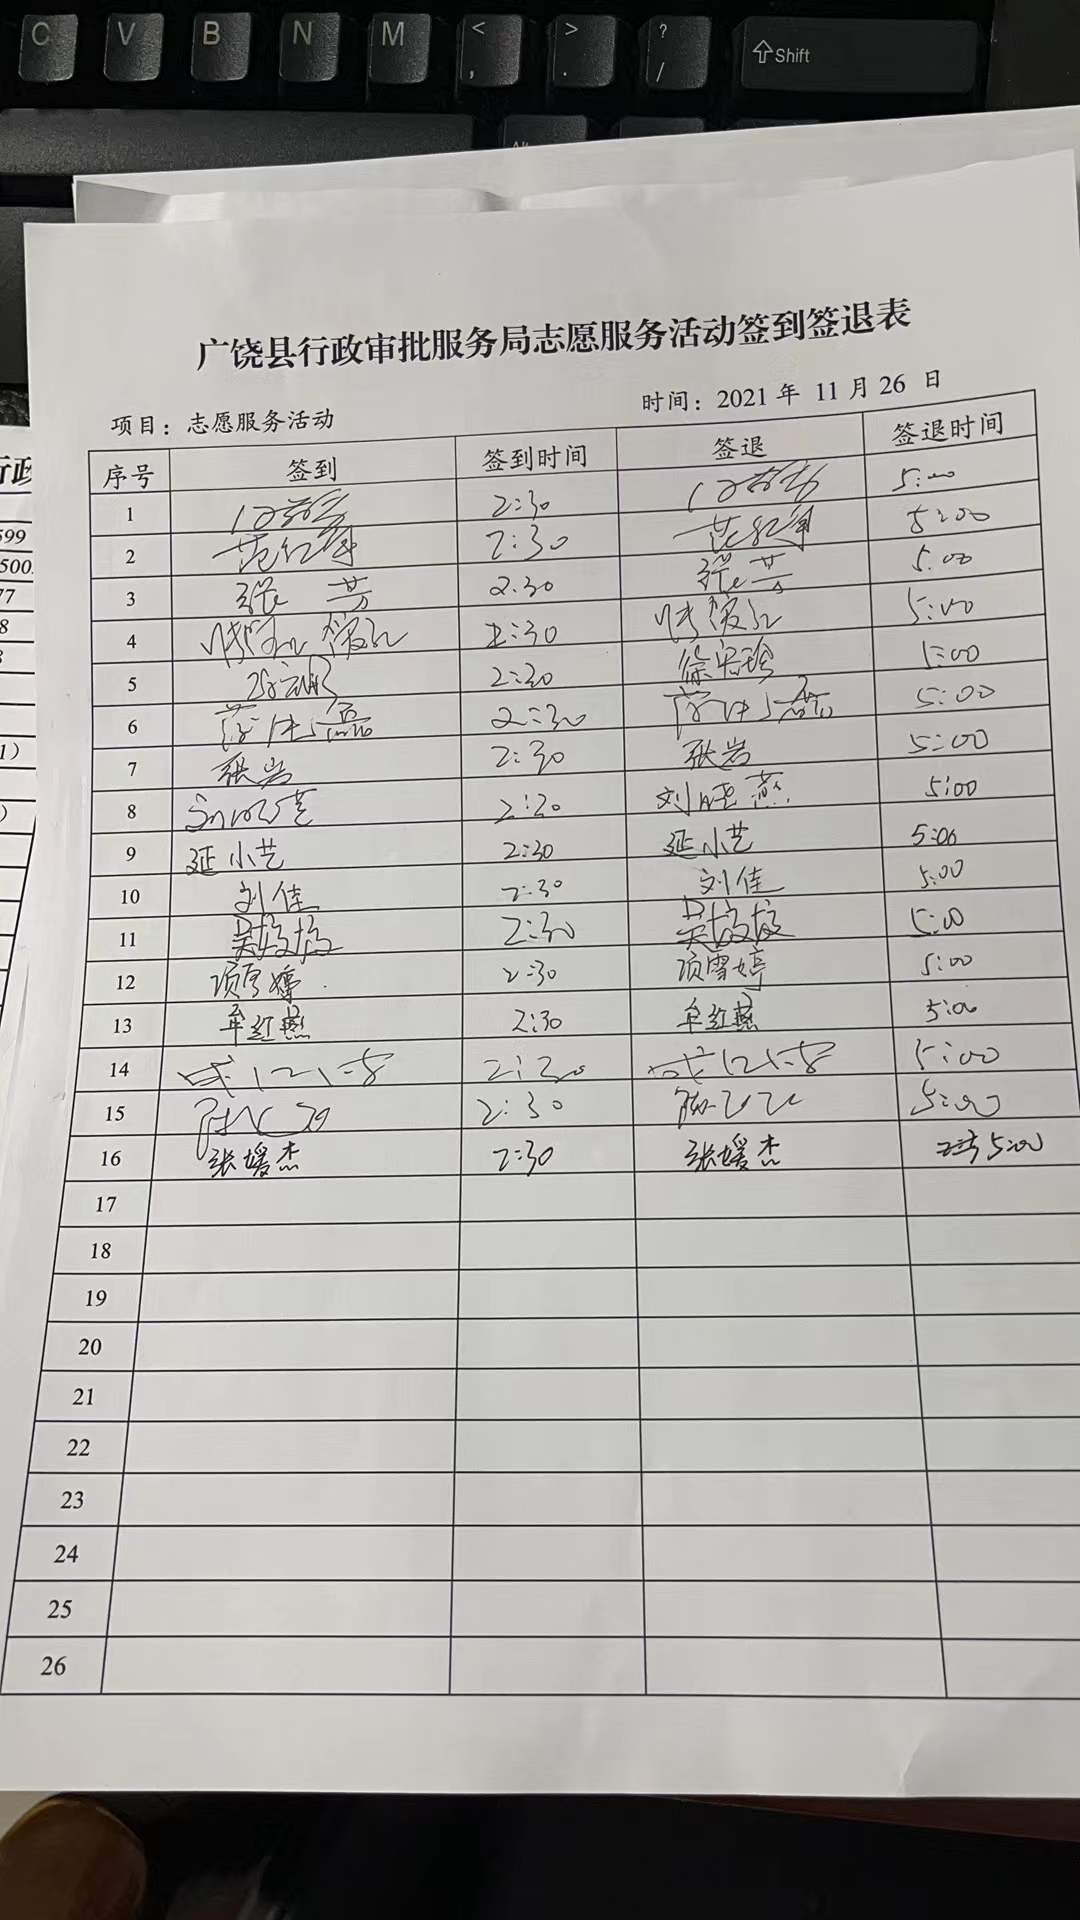 C V B N M < , > . ? / Shift
广饶县行政审批服务局志愿服务活动签到签退表
项目：志愿服务活动 时间：2021年 11月26 日
序号 签到 签到时间 签退 签退时间
1 2:30 5:00
2 范红军 2:30 范红军 5:00
3 张芳 2:30 张芳 5:00
4 2:30 5:00
5 2:30 徐宝珍 5:00
6 2:30 5:00
7 张岩 2:30 张岩 5:00
8 2:30 刘晓燕 5:00
9 延小艺 2:30 延小艺 5:00
10 刘佳 2:30 刘佳 5:00
11 2:30 5:00
12 项雪婷 2:30 项雪婷 5:00
13 牟红燕 2:30 牟红燕 5:00
14 2:30 5:00
15 2:30 5:00
16 张媛杰 2:30 张媛杰 5:00
17
18
19
20
21
22
23
24
25
26
行政
599
500
77
8